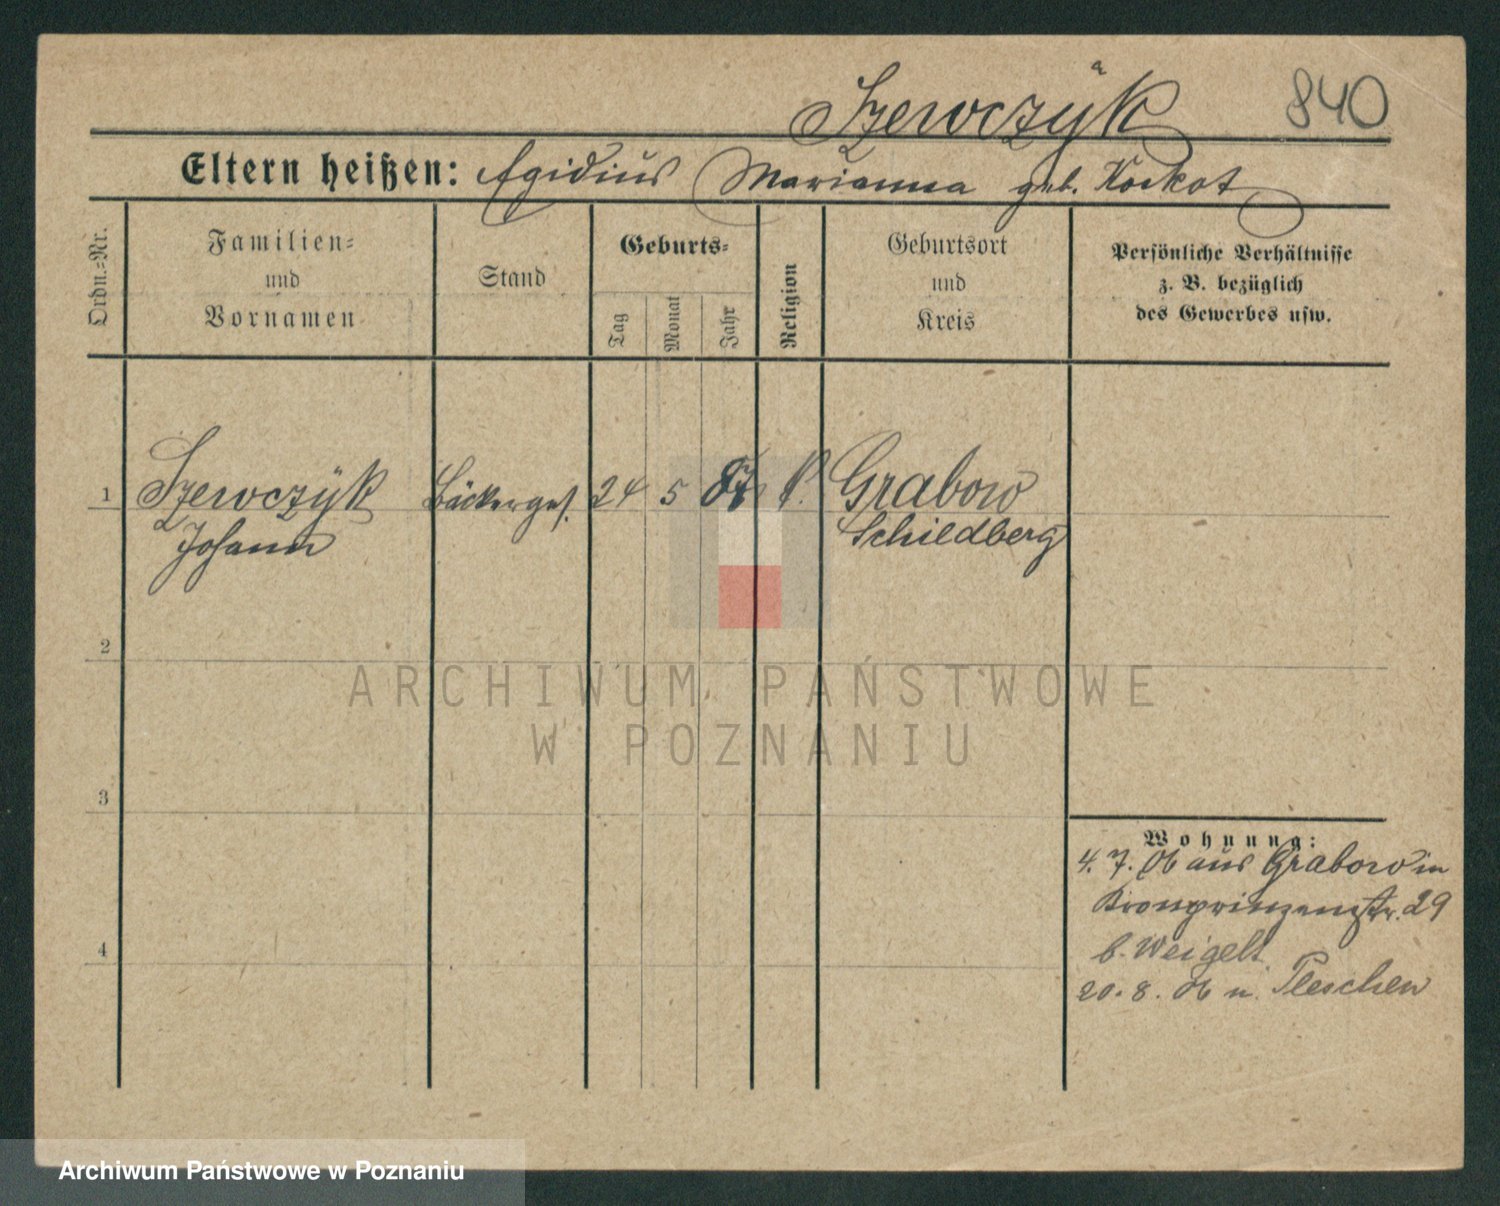 Szewczyk 840
Eltern heißen: Egidius Marianna geb. Kockot
Ordn.=Nr.
Familien= und Vornamen
Stand
Geburts=
Tag
Monat
Jahr
Religion
Geburtsort und Kreis
Persönliche Verhältnisse
z. B. bezüglich
des Gewerbes usw.
1 Szewczyk Bäckerges. 24 5 87 k. Grabow
Johann Schildberg
2
3
4
Wohnung:
4. 7. 06 aus Grabow in
Kronprinzenstr. 29
b. Weigelt
20. 8. 06 n. Pleschen
ARCHIWUM PAŃSTWOWE
W POZNANIU
Archiwum Państwowe w Poznaniu